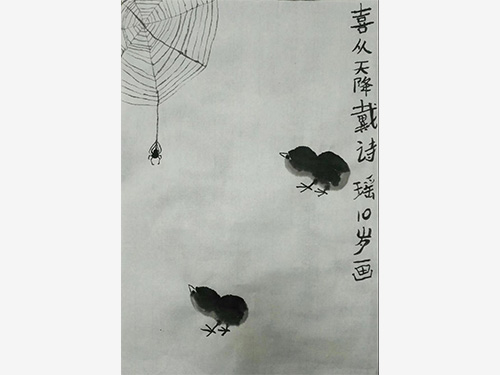 喜从天降戴诗瑶10岁画